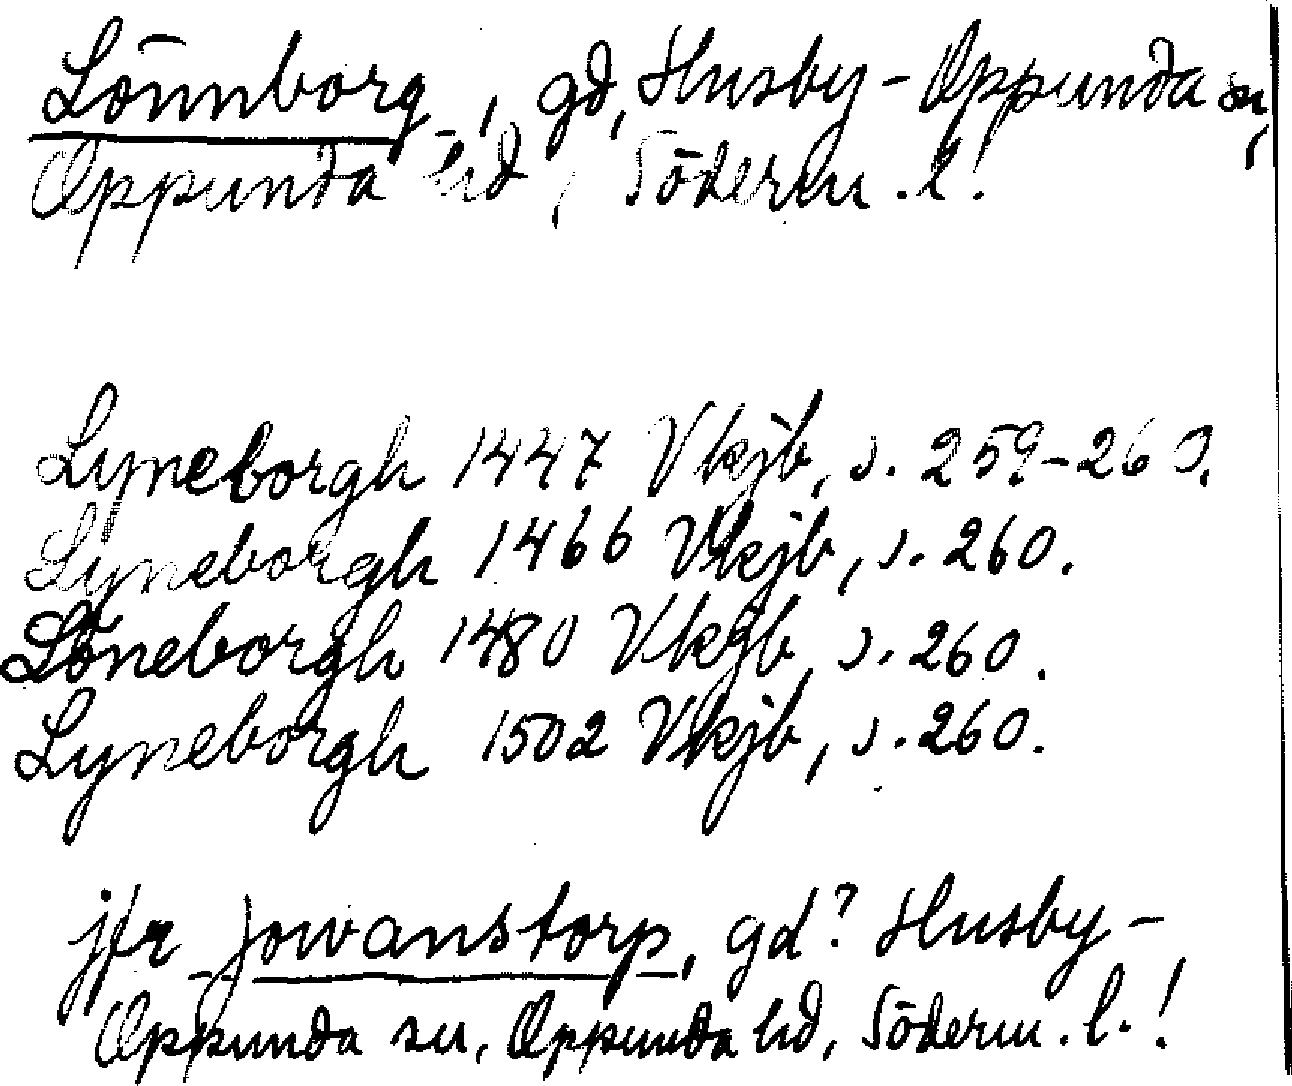 Lönnborg, gd, Husby-Oppunda sn,
Oppunda hd, Söderm. l!
Lyneborgh 1447 Vkjb, s. 259-260.
Lyneborgh 1466 Vkjb, s. 260.
Löneborgh 1480 Vkjb, s. 260.
Lyneborgh 1502 Vkjb, s. 260.
jfr Jowanstorp, gd? Husby-
Oppunda sn, Oppunda hd, Söderm. l.!